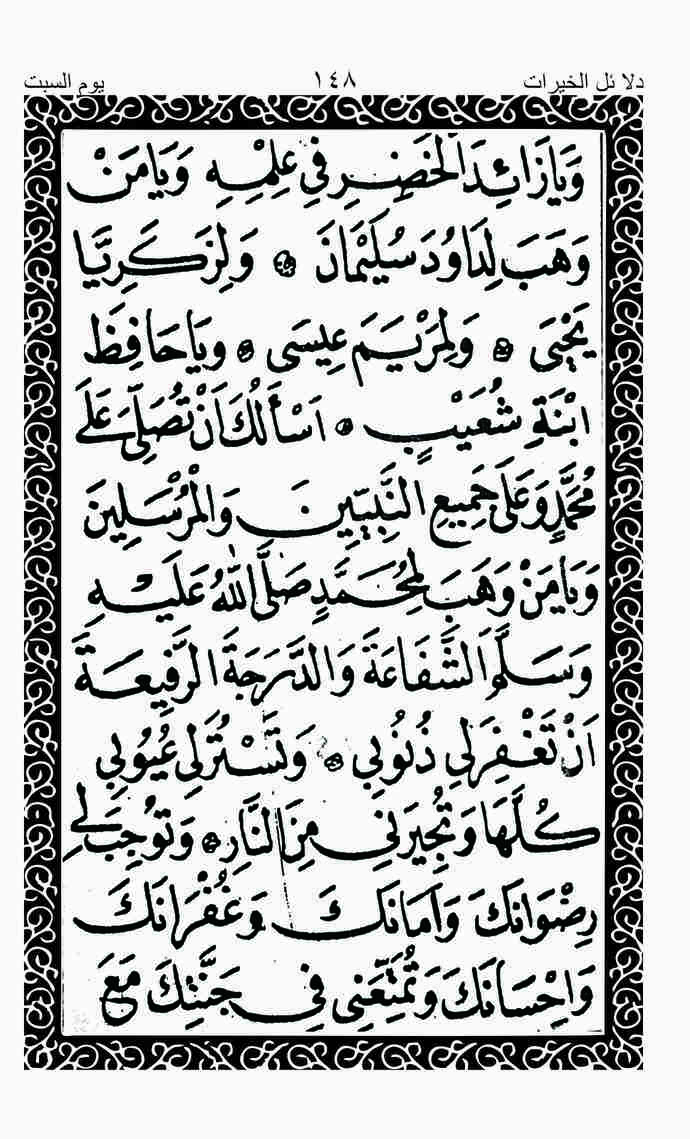 دلا ئل الخيرات ١٤٨ يوم السبت
وَيَا زَائِدَ الْخَضِرِ فِي عِلْمِهِ وَيَا مَنْ
وَهَبَ لِدَاوُدَ سُلَيْمَانَ ۞ وَلِزَكَرِيَّا
يَحْيَى ۞ وَلِمَرْيَمَ عِيسَى ۞ وَيَا حَافِظَ
ابْنَةِ شُعَيْبٍ ۞ اَسْأَلُكَ اَنْ تُصَلِّىَ عَلَى
مُحَمَّدٍ وَعَلَى جَمِيعِ النَّبِيِّينَ وَالْمُرْسَلِينَ
وَيَا مَنْ وَهَبَ لِمُحَمَّدٍ صَلَّى اللهُ عَلَيْهِ
وَسَلَّمَ الشَّفَاعَةَ وَالدَّرَجَةَ الرَّفِيعَةَ
اَنْ تَغْفِرَ لِي ذُنُوبِي ۞ وَتَسْتُرَ لِي عُيُوبِي
كُلَّهَا وَتُجِيرَنِي مِنَ النَّارِ ۞ وَتُوجِبَ لِي
رِضْوَانَكَ وَاَمَانَكَ وَغُفْرَانَكَ
وَاِحْسَانَكَ وَتُمَتِّعَنِي فِي جَنَّتِكَ مَعَ